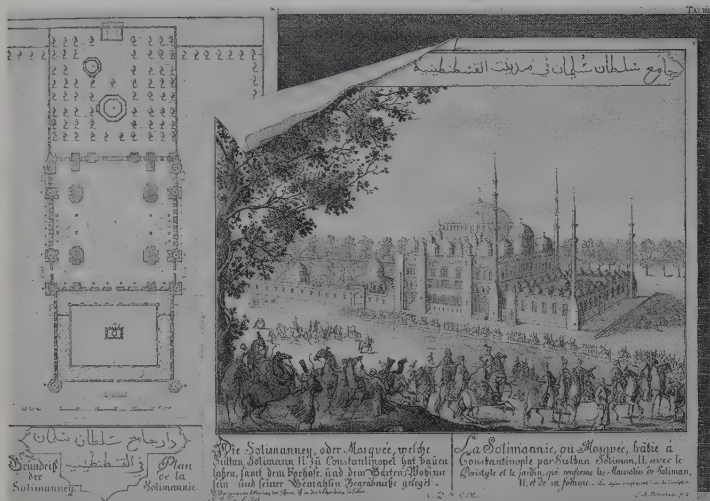 جامع سلطان سليمان في مدينت القسطنطينية
دار جامع سلطان سليمان
في القسطنطينية
Grundriß
der
Solimanney
Plan
de la
Solimannie.
Die Solimanney, oder Mosqvée, welche
Sultan Solimann II. zu Constantinopel hat bauen
laßen, samt dem Vorhofe, und dem Garten, Wohinn
sein und seiner Gemahlin Begräbnuße geleget.
La Solimannie, ou Mosqvée, bâtie à
Constantinople par Sultan Soliman, II. avec le
Peristyle et le jardin, qui renferme les Mausolées de Soliman,
II. et de sa femme.